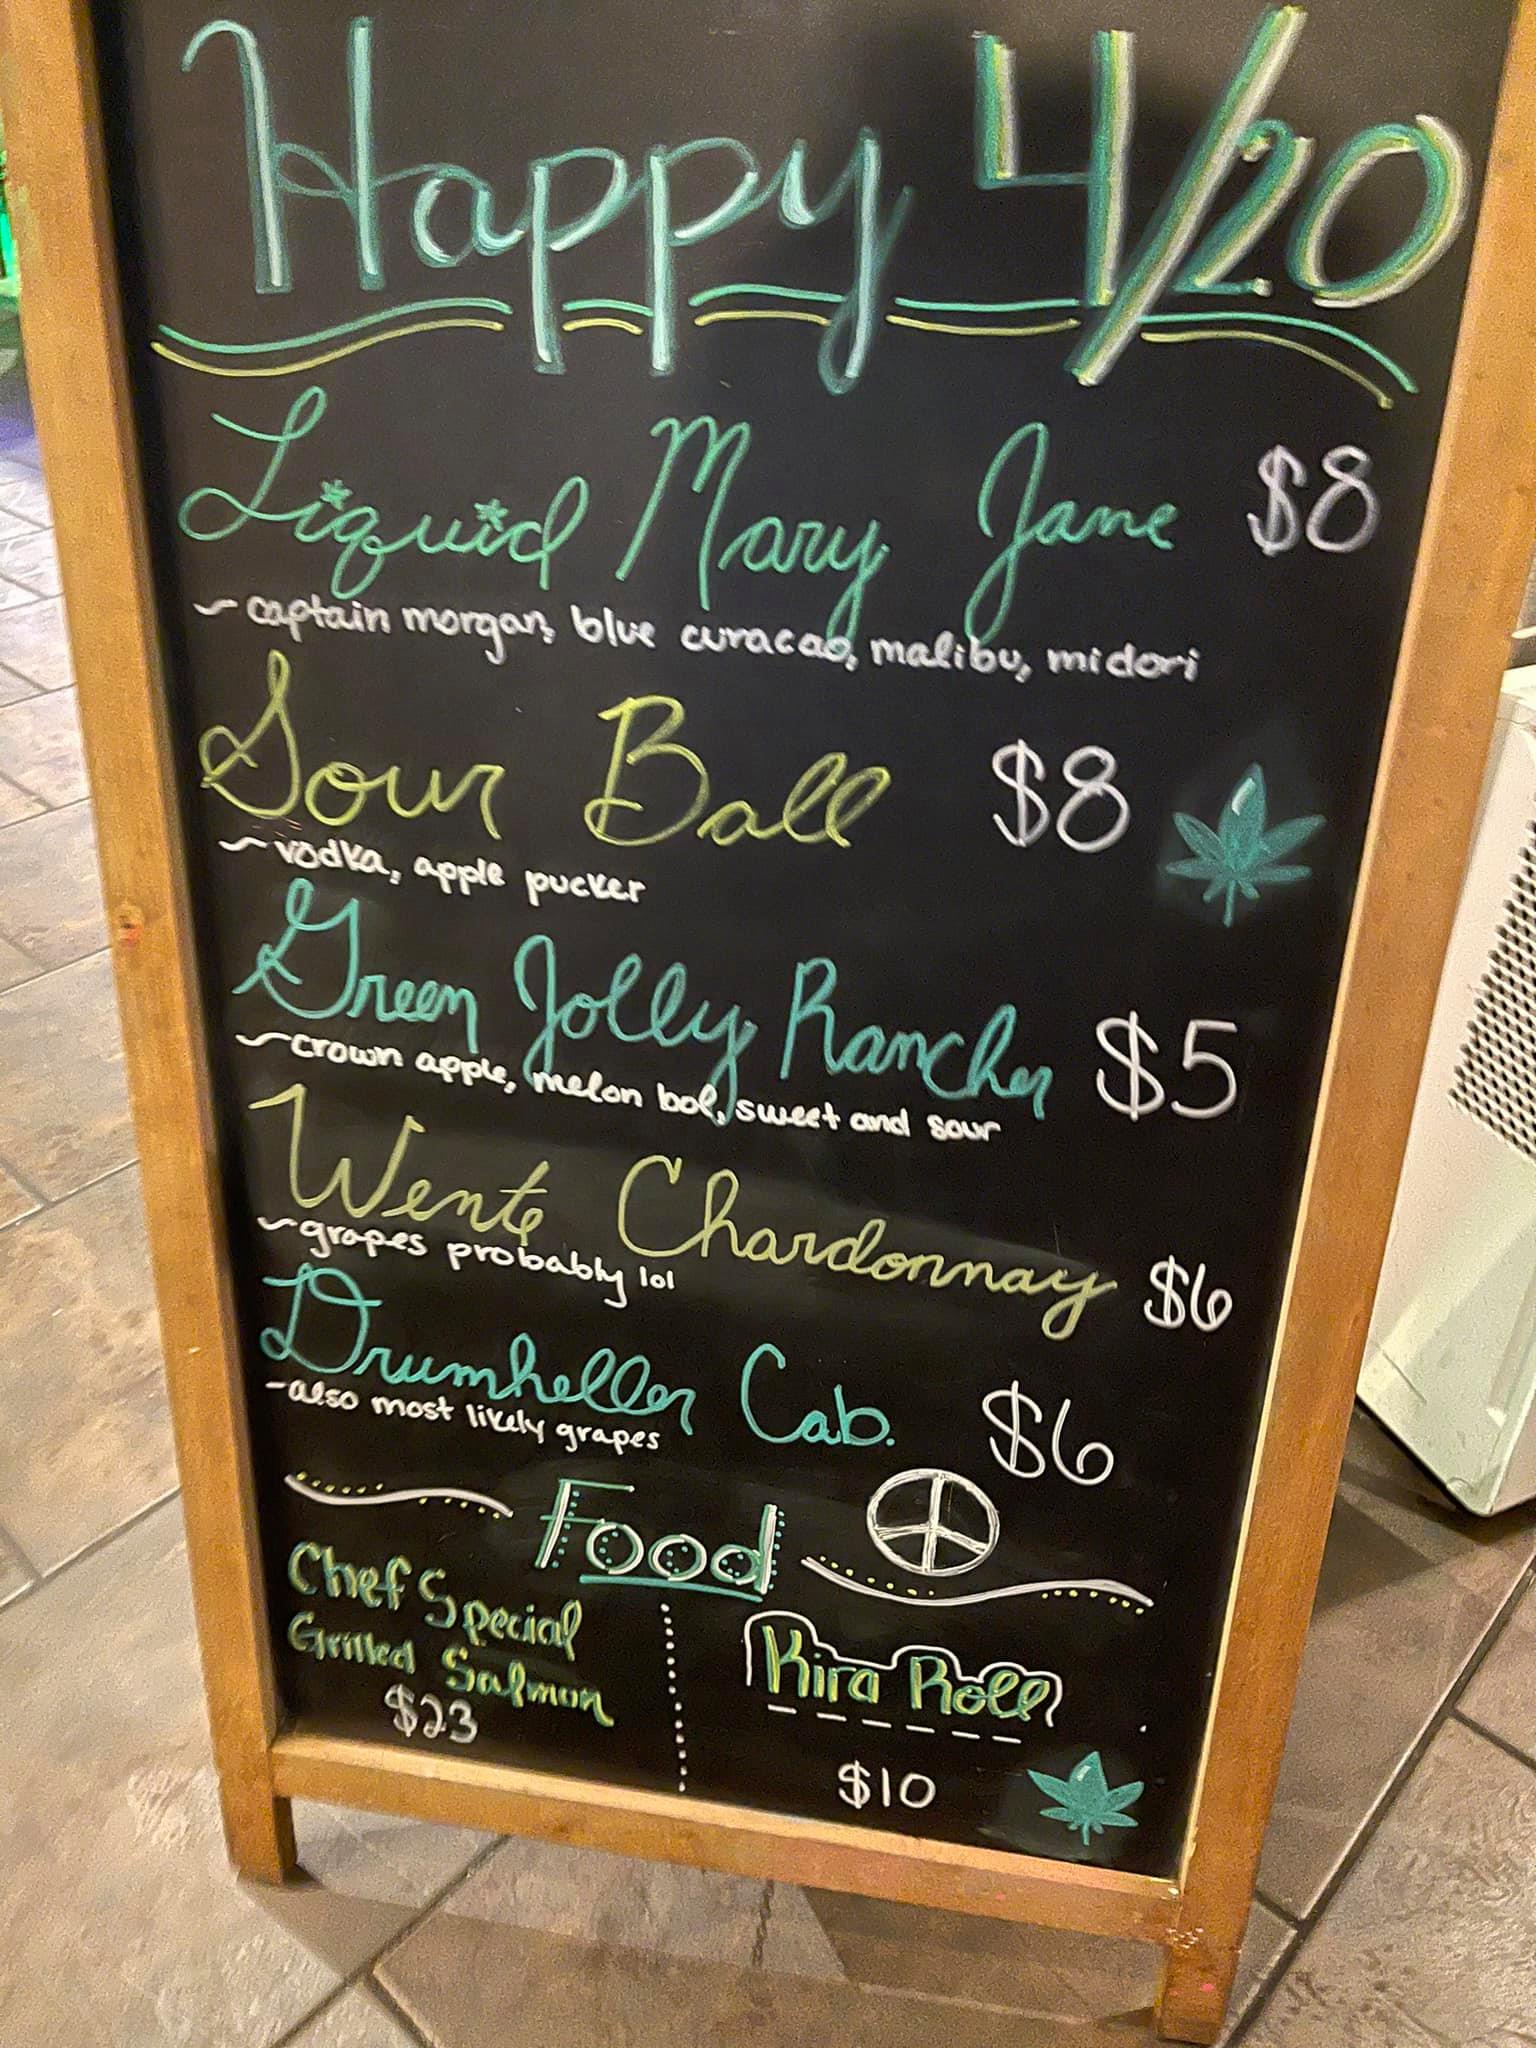 Happy 4/20
Liquid Mary Jane $8
~ captain morgan, blue curacao, malibu, midori
Sour Ball $8
~ vodka, apple pucker
Green Jolly Rancher $5
~ crown apple, melon bol, sweet and sour
Wente Chardonnay $6
~ grapes probably lol
Drumheller Cab. $6
- also most likely grapes
Food
Chef Special
Grilled Salmon
$23
Kira Roll
$10